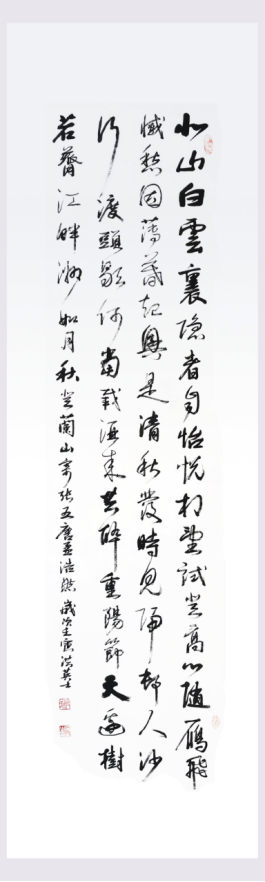 北山白雲裏隐者自怡悦相望試登高心随鴈飛
滅愁因薄暮起興是清秋發時見歸邨人沙
行渡頭歇何當載酒来共醉重陽節天邊樹
若薺江畔洲如月秋登蘭山寄张五唐孟浩然歲次壬寅洪英士